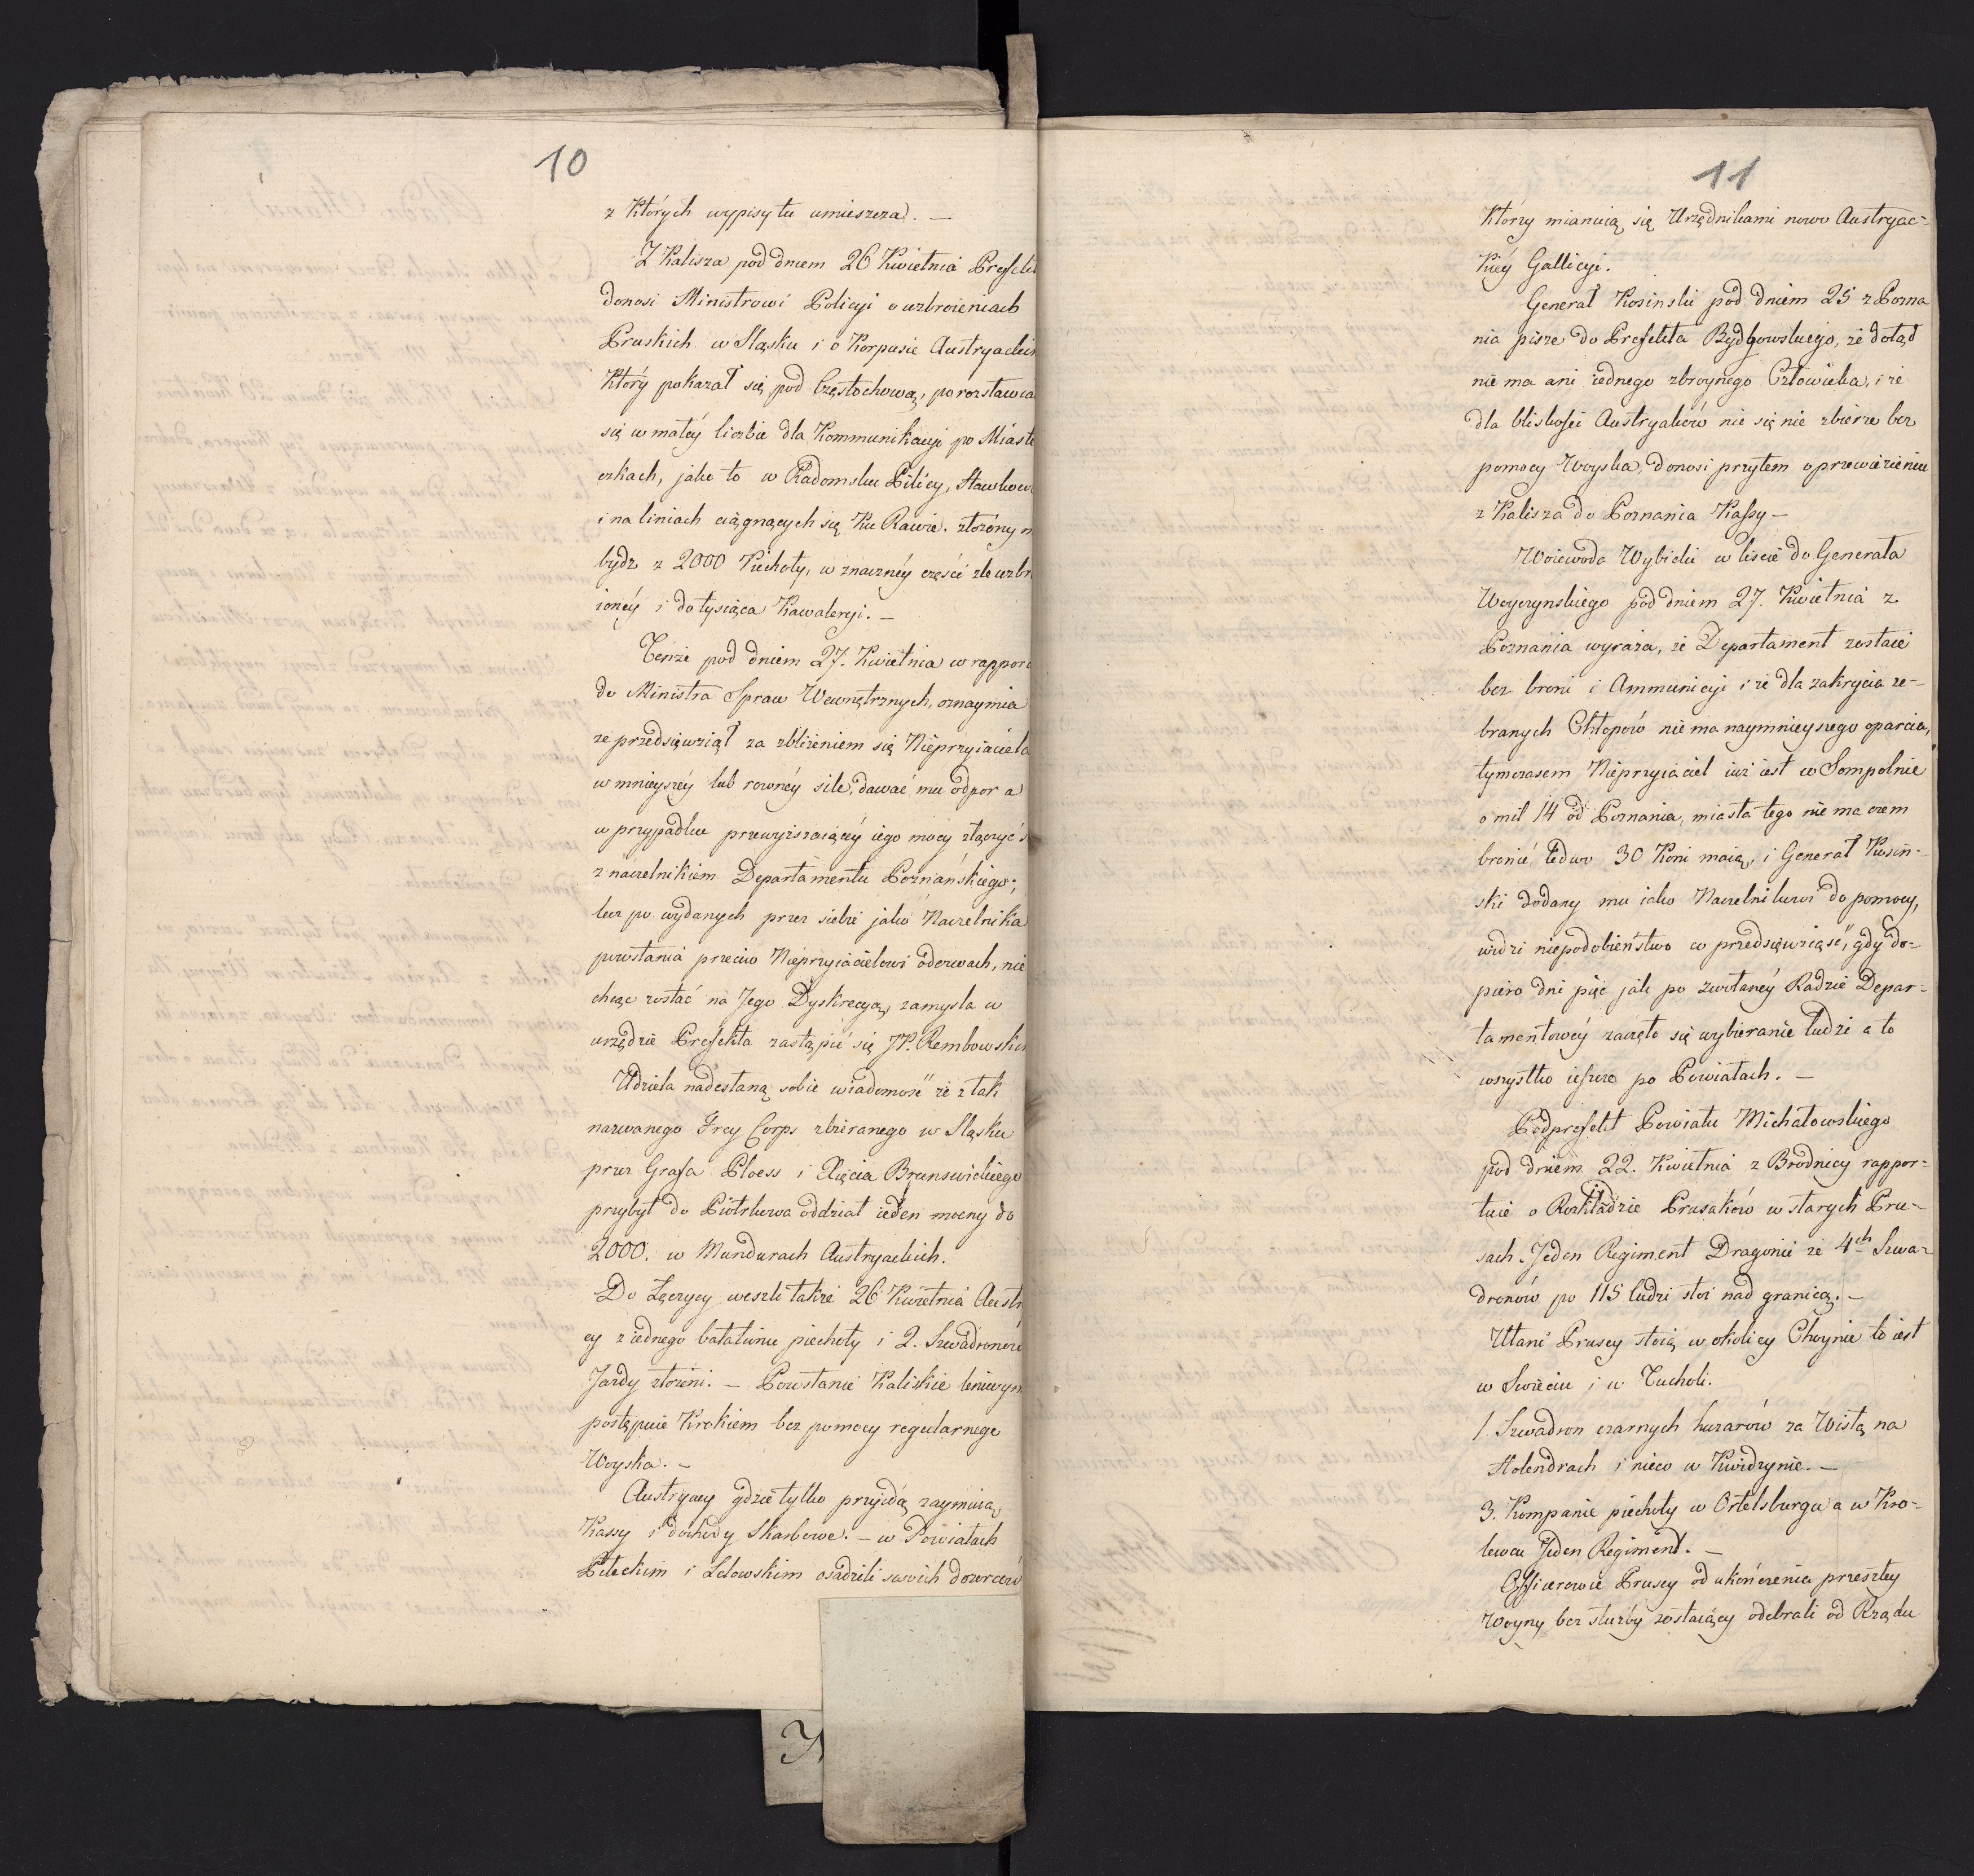 10
z Których wypisy tu umieszcza. —
Z Kalisza pod dniem 26 Kwietnia Prefekt
donosi Ministrowi Policyi o uzbroieniach
Pruskich w Sląsku i o Korpusie Austryackim
Który pokazał się pod Częstochową, porozstawia
się w małéy liczbie dla Kommunikacyi po Miaste
czkach, jako to w Radomsku Pilicy, Sławkow
i na liniach ciągnących się Ku Rawie. złożony m
bydź z 2000 Piechoty, w znacznéy części źle uzbro
ionéy i do tysiąca Kawaleryi. —
Tenże pod dniem 27. Kwietnia w rappor
do Ministra Spraw Wewnętrznych, oznaymia
że przedsięwziął za zbliżeniem się Nieprzyiaciela
w mnieyszéy lub rownéy sile, dawać mu odpor a
w przypadku przewyższaiącéy iego mocy złączyć s
z naczelnikiem Departamentu Poznańskiego;
lecz po wydanych przez siebie jako Naczelnika
powstania przeciw Nieprzyiacielowi odezwach, nie
chcąc zostać na Jego Dyskrecyą, zamysla w
urzędzie Prefekta zastąpić się JP. Rembowskim
Udziela nadesłaną sobie wiadomość że z tak
nazwanego Frey Corps zbieranego w Sląsku
przez Grafa Ploess i Xięcia Brunswickiego
przybył do Piotrkowa oddział ieden mocny do
2000. w Mundurach Austryackich.
Do Łęczycy weszli także 26 Kwietnia Austr
cy z iednego batalionu piechoty i 2. Szwadronow
Jazdy złożeni. — Powstanie Kaliskie leniwym
postępuie Krokiem bez pomocy regularnego
Woyska. —
Austryacy gdzie tylko przyidą zaymuią
Kassy i dochody Skarbowe. — w Powiatach
Pileckim i Lelowskim osadzili swoich dozorców
11
Którzy mianuią się Urzędnikami nowo Austryac-
Kiéy Gallicyi.
Generał Kosinski pod dniem 25 z Pozna
nia pisze do Prefekta Bydgowskiego, że dotąd
nie ma ani iednego zbroynego Człowieka, i że
dla bliskości Austryaków nic się nie zbierze bez
pomocy Woyska, donosi przytem o przewiezieniu
z Kalisza do Poznania Kassy —
Woiewoda Wybicki w liscie do Generała
Woyczynskiego pod dniem 27. Kwietnia z
Poznania wyraża, że Departament zostaie
bez broni i Ammunicyi i że dla zakrycia ze-
branych Chłopów nie ma naymnieyszego oparcia,
tymczasem Nieprzyiaciel iuż iest w Sompolnie
o mil 14 od Poznania, miasta tego nie ma czem
bronić ledwo 30 Koni maią, i Generał Kosin-
ski dodany mu iako Naczelnikowi do pomocy,
widzi niepodobieństwo co przedsięwziąść, gdy do-
piero dni pięć jak po zwołanéy Radzie Depar-
tamentowéy zaczęło się wybieranie ludzi a to
wszystko ieszcze po Powiatach. —
Podprefekt Powiatu Michałowskiego
pod dniem 22. Kwietnia z Brodnicy rappor-
tuie o Rozkładzie Prusaków w starych Pru-
sach. Jeden Regiment Dragonii ze 4ch Szwa-
dronów po 115 ludzi stoi nad granicą. —
Ułani Pruscy stoią w okolicy Choynic to iest
w Swieciu i w Tucholi.
1. Szwadron czarnych huzarów za Wisłą na
Holendrach i nieco w Kwidzynie. —
3. Kompanie piechoty w Ortelsburgu a w Kro-
lewcu Jeden Regiment. —
Officerowie Pruscy od ukończenia przeszłey
Woyny bez służby zostaiący odebrali od Rządu